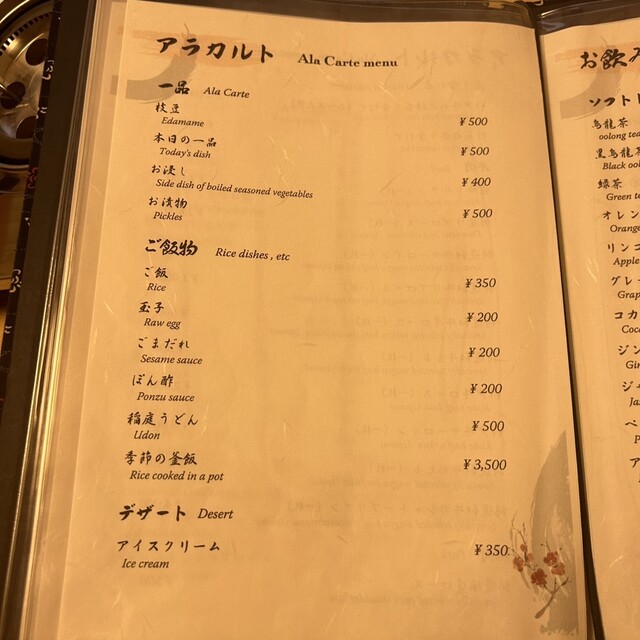 アラカルト Ala Carte menu
一品 Ala Carte
枝豆
Edamame ¥500
本日の一品
Today's dish ¥500
お浸し
Side dish of boiled seasoned vegetables ¥400
お漬物
Pickles ¥500
ご飯物 Rice dishes , etc
ご飯
Rice ¥350
玉子
Raw egg ¥200
ごまだれ
Sesame sauce ¥200
ぽん酢
Ponzu sauce ¥200
稲庭うどん
Udon ¥500
季節の釜飯
Rice cooked in a pot ¥3,500
デザート Desert
アイスクリーム
Ice cream ¥350
お飲み
ソフト
烏龍茶
oolong tea
黒烏龍茶
Black ool
緑茶
Green te
オレン
Orange
リンゴ
Apple
グレー
Grap
コカ
Coca
ジン
Gin
ジャ
Jas
ペ
P
ア